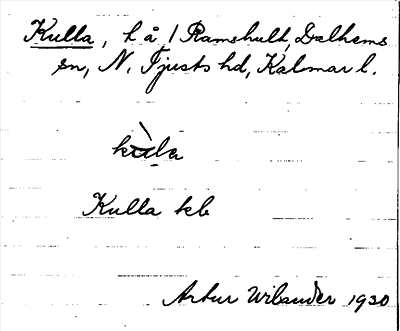 Kulla, h å / Ramshult, Dalhems
sn, N. Tjusts hd, Kalmar l.
Kulla kb
Artur Wilander 1930